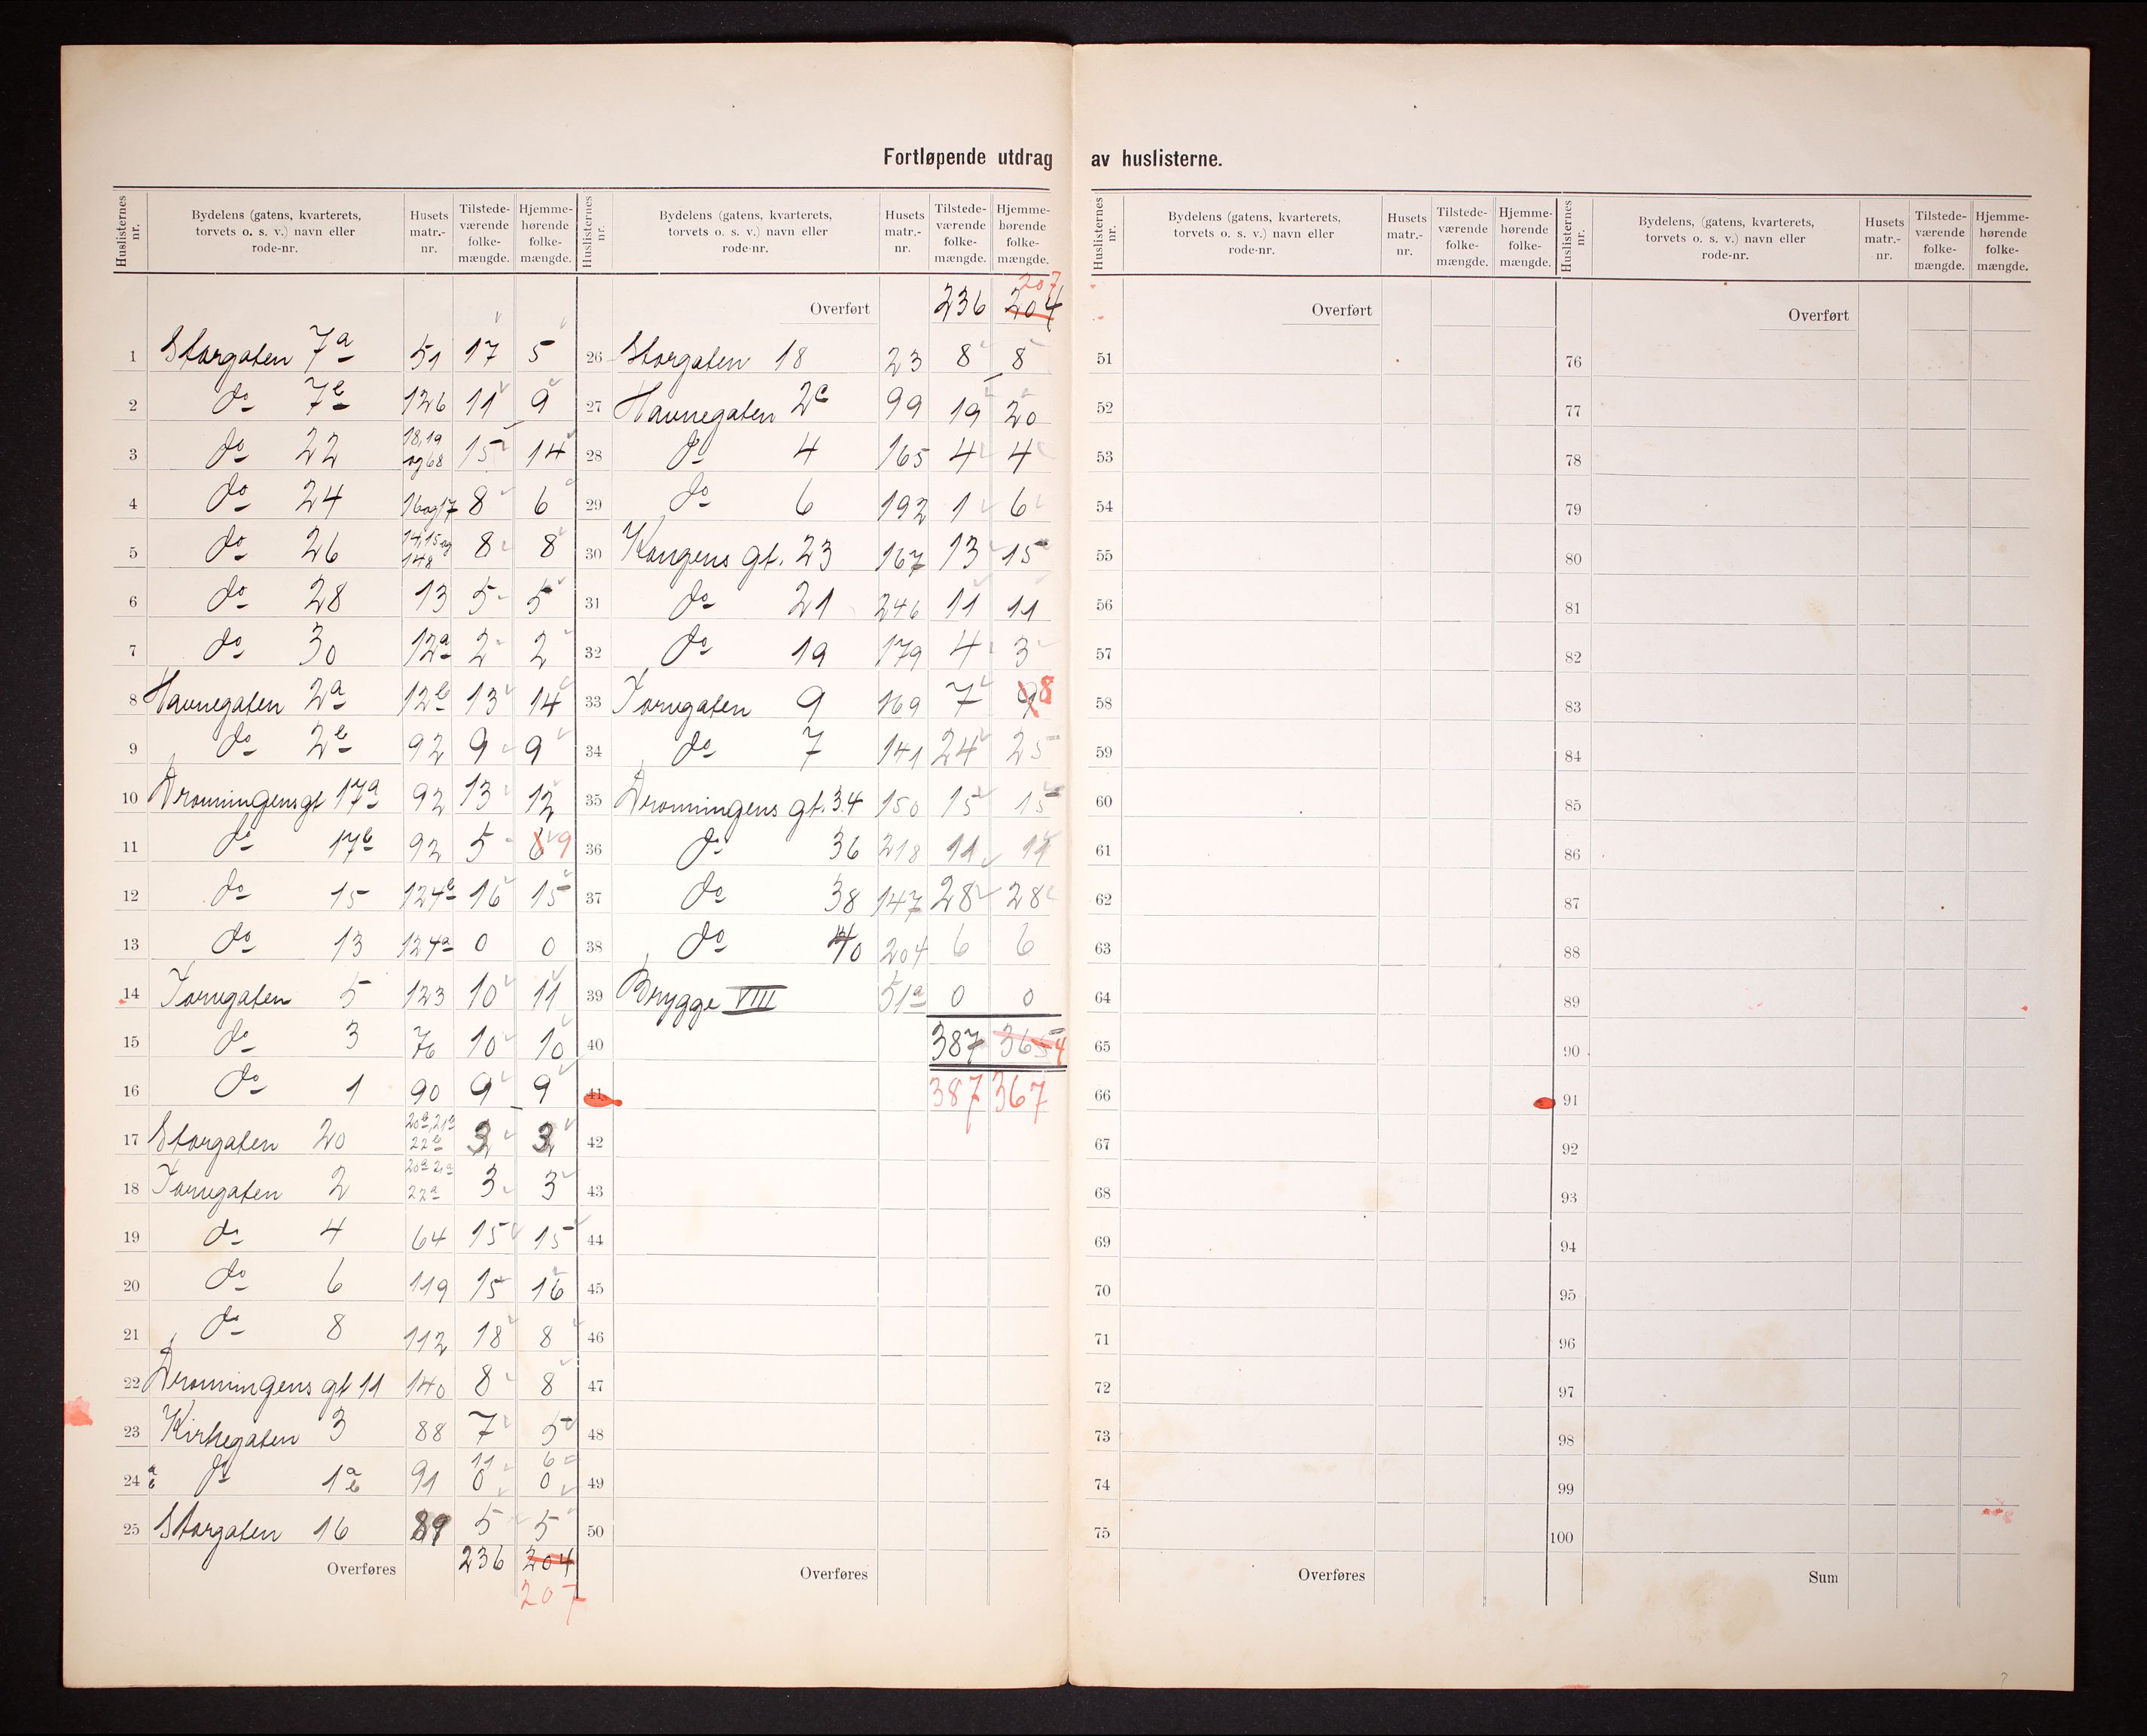 Fortløpende utdrag av huslisterne.
Huslisternes nr. Bydelens (gatens, kvarterets, torvets o. s. v.) navn eller rode-nr. Husets matr.-nr. Tilstede-værende folke-mængde. Hjemme-hørende folke-mængde.
1 Storgaten 7a 51 17 5
2 do 7b 126 11 9
3 do 22 18,19 og 68 15 14
4 do 24 16 og 17 8 6
5 do 26 14,15 og 148 8 8
6 do 28 13 5 5
7 do 30 12a 2 2
8 Havnegaten 2a 12b 13 14
9 do 2b 92 9 9
10 Dronningensgt 17a 92 13 12
11 do 17b 92 5 8 9
12 do 15 124b 16 15
13 do 13 124a 0 0
14 Torvegaten 5 123 10 11
15 do 3 76 10 10
16 do 1 90 9 9
17 Storgaten 20 20b, 21b 22b 3 3
18 Torvegaten 2 20a 21a 22a 3 3
19 do 4 64 15 15
20 do 6 119 15 16
21 do 8 112 18 8
22 Dronningens gt 11 140 8 8
23 Kirkegaten 3 88 7 5
24 a b do 1 a b 91 11 0 6 0
25 Storgaten 16 89 5 5
Overføres 236 204
207
Huslisternes nr. Bydelens (gatens, kvarterets, torvets o. s. v.) navn eller rode-nr. Husets matr.-nr. Tilstede-værende folke-mængde. Hjemme-hørende folke-mængde.
207
Overført 236 204
26 Storgaten 18 23 8 8
27 Havnegaten 2c 99 19 20
28 do 4 165 4 4
29 do 6 192 1 6
30 Kongens gt. 23 167 13 15
31 do 21 246 11 11
32 do 19 179 4 3
33 Torvgaten 9 169 7 9 8
34 do 7 141 24 25
35 Dronningens gt. 34 150 15 15
36 do 36 218 11 11
37 do 38 147 28 28
38 do 40 204 6 6
39 Brygge VIII 51a 0 0
40 387 365 4
41 387 367
42
43
44
45
46
47
48
49
50
Overføres
Huslisternes nr. Bydelens (gatens, kvarterets, torvets o. s. v.) navn eller rode-nr. Husets matr.-nr. Tilstede-værende folke-mængde. Hjemme-hørende folke-mængde.
Overført
51
52
53
54
55
56
57
58
59
60
61
62
63
64
65
66
67
68
69
70
71
72
73
74
75
Overføres
Huslisternes nr. Bydelens, (gatens, kvarterets, torvets o. s. v.) navn eller rode-nr. Husets matr.-nr. Tilstede-værende folke-mængde. Hjemme-hørende folke-mængde.
Overført
76
77
78
79
80
81
82
83
84
85
86
87
88
89
90
91
92
93
94
95
96
97
98
99
100
Sum